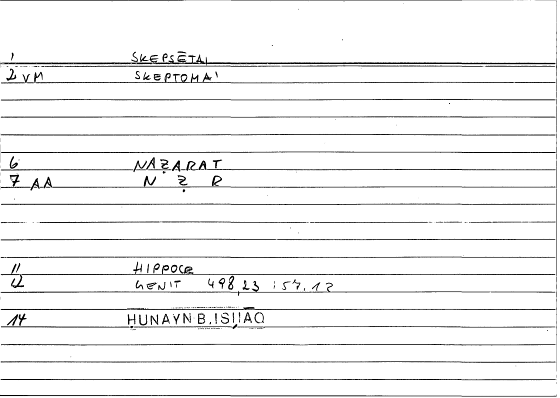 1 SKEPSĒTAI
2 VM SKEPTOMAI
6 NAẒARAT
7 AA N Ẓ R
11 HIPPOCR
12 GENIT 498,23 :57.12
14 ḤUNAYN B.ISḤĀQ